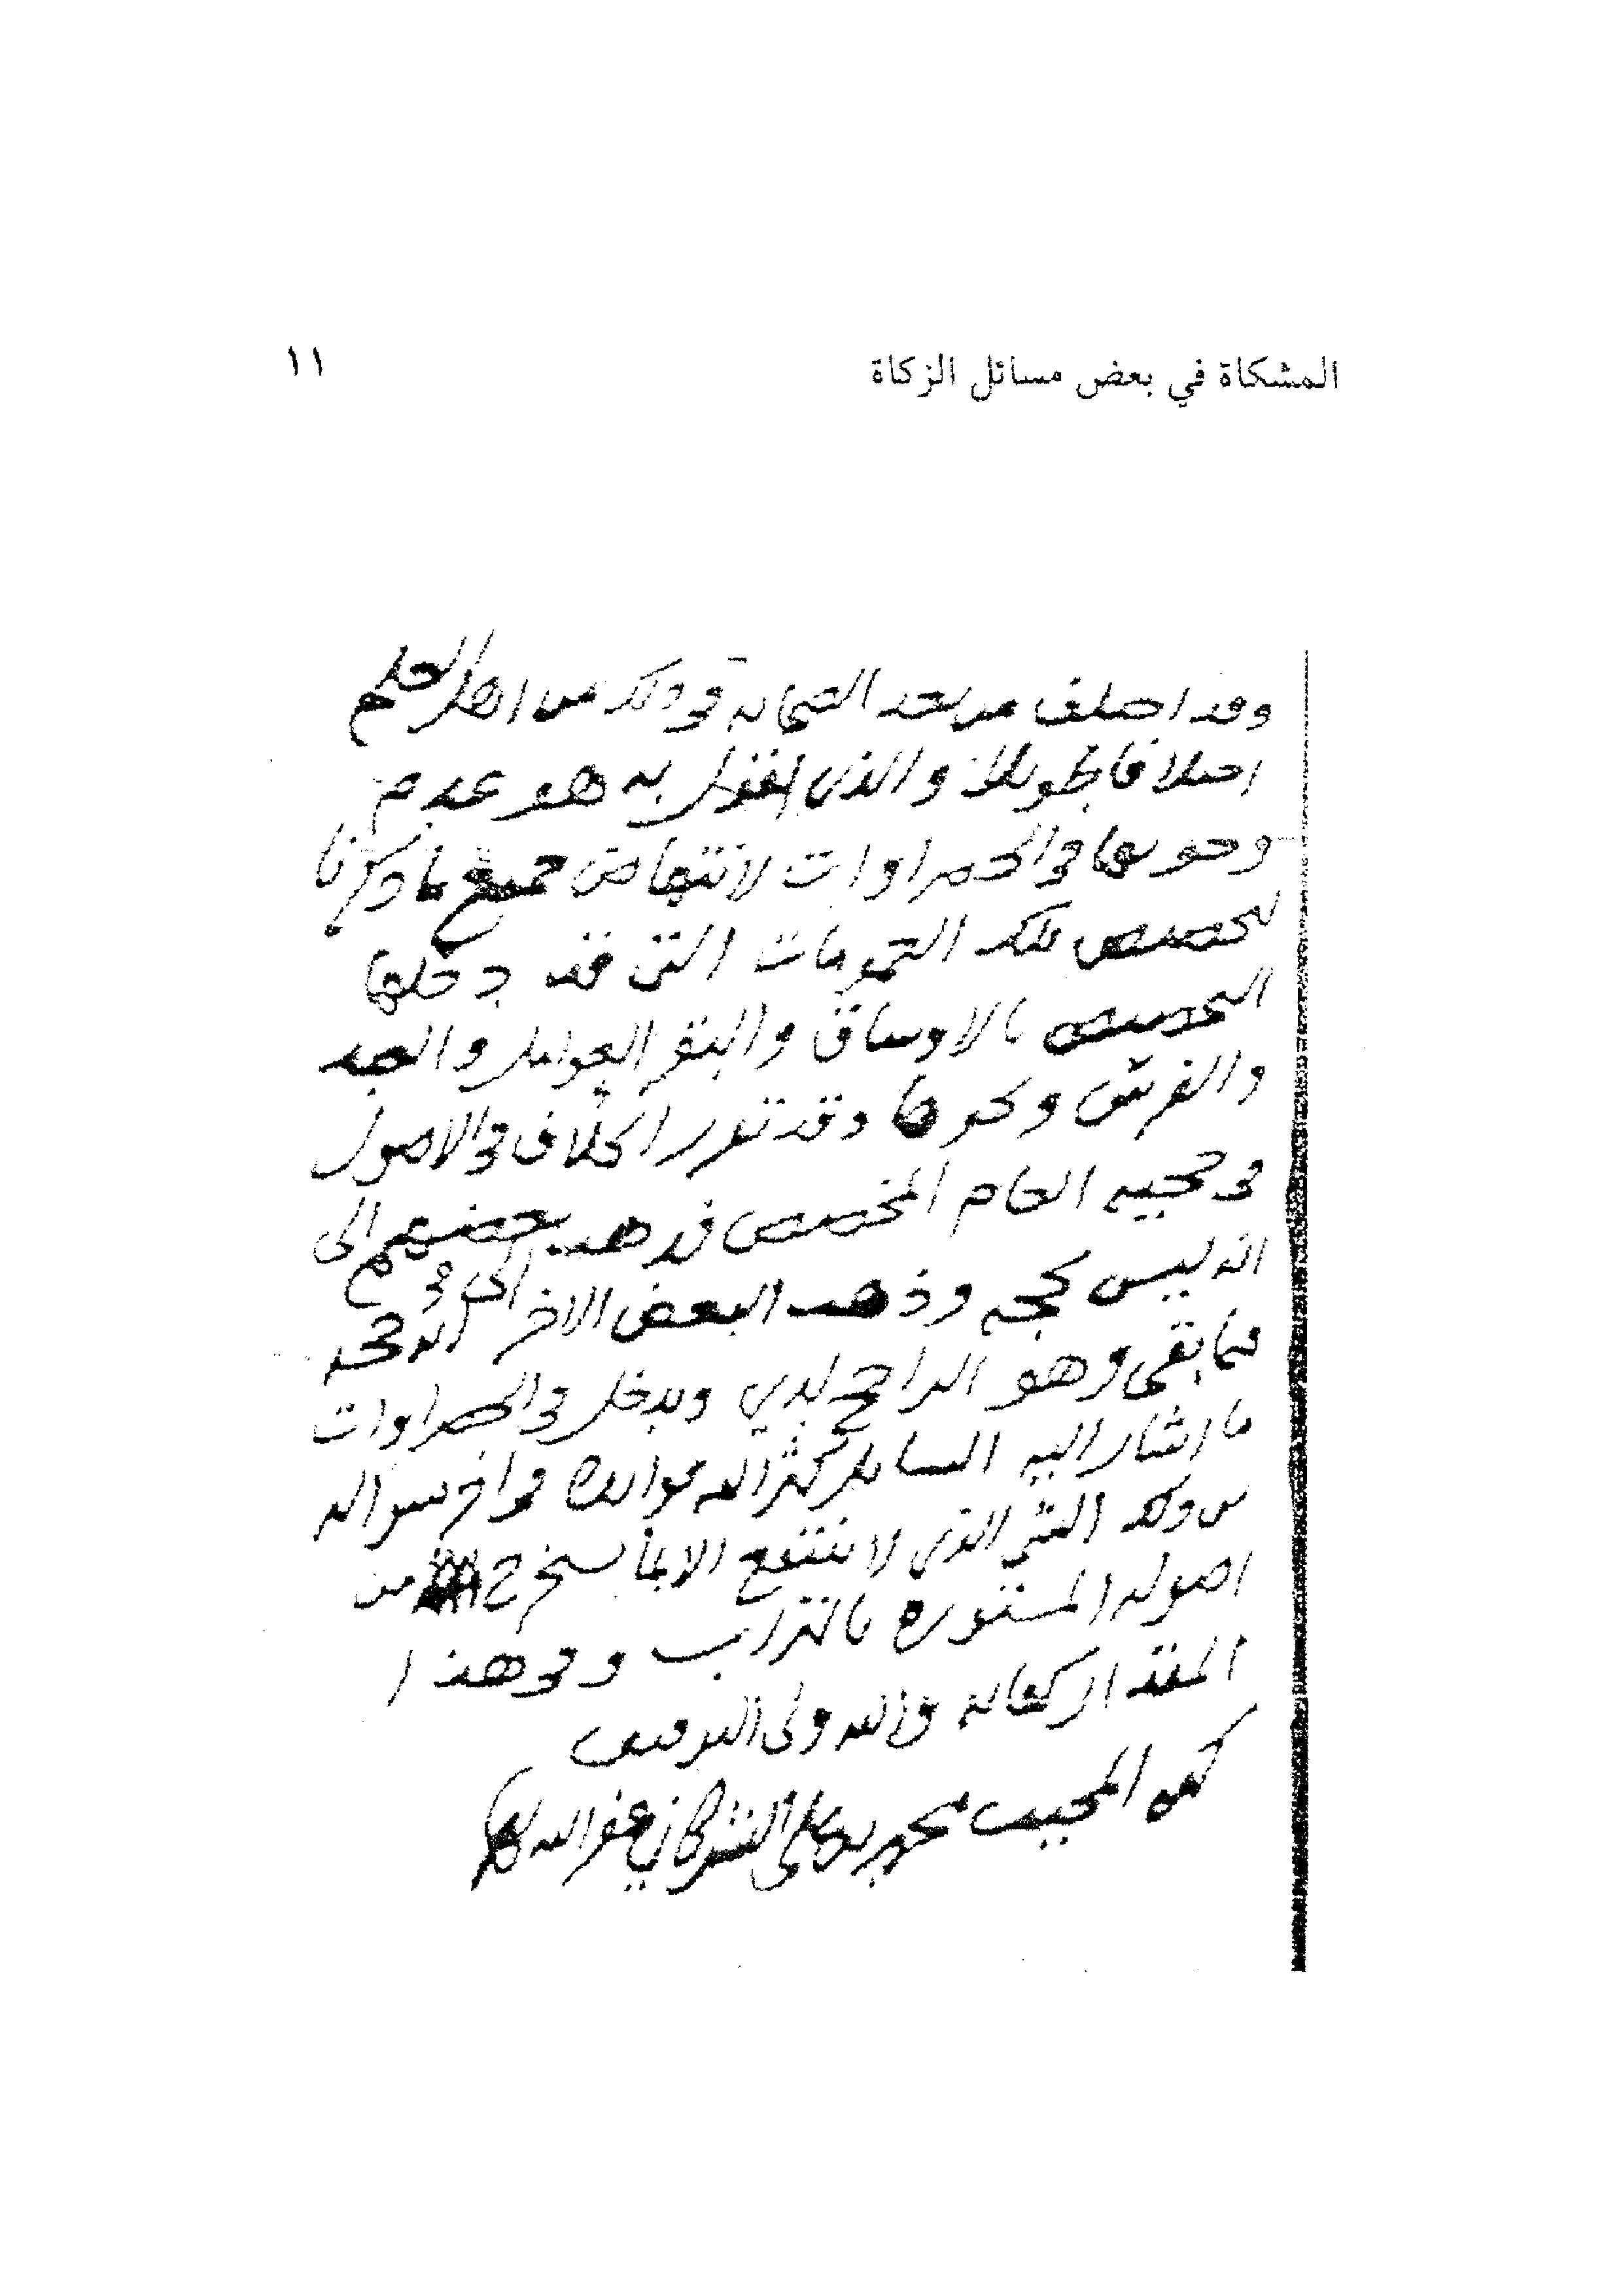 المشكاة في بعض مسائل الزكاة
١١
وقد اختلف من بعد الصحابه في ذلك من اهل العلم
اختلافا طويلا والذي اقول به هو عدم
وجوبها في الخضراوات لانتهاض جميع ما ذكرنا
لتخصيص تلك العمومات التي قد دخلها
التخصيص بالاوساق والبقر العوامل والعبد
والفرس ونحوها وقد تقرر الخلاف في الاصول
في حجيه العام المخصص فذهب بعضهم الى
انه ليس بحجه وذهب البعض الاخر الى انه حجه
فيما بقي وهو الراجح لدي ويدخل في الخضراوات
ما اشار اليه السايل كثر الله فوائده في اخر سواله
من ذلك الشي الذي لا ينتفع الا بما من
اصوله المستوره بالتراب وفي هذا
المقدار كفايه والله ولي التوفيق
كتبه المجيب محمد بن علي الشوكاني غفر الله لهما